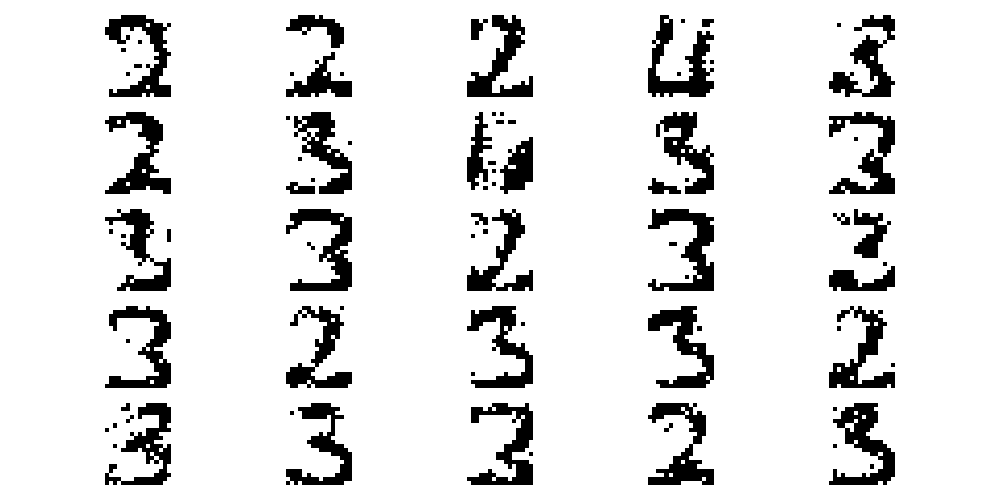 2 2 2 4 3
2 3 3 3
3 3 2 3 3
3 2 3 3 2
3 3 3 2 3